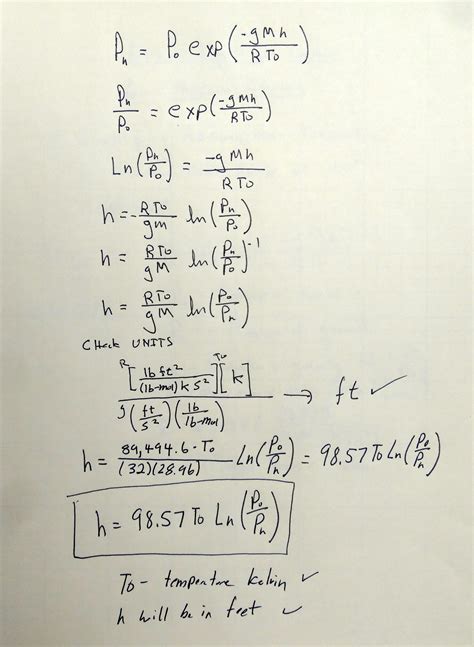 Ph = Po exp(-gMh / RTo)
Ph/Po = exp(-gMh / RTo)
Ln(Ph/Po) = -gMh / RTo
h = - RTo/gm ln(Ph/Po)
h = RTo/gM ln(Ph/Po)^-1
h = RTo/gM ln(Po/Ph)
CHeck UNITS
R [lb ft² / (lb-mol) k s²] To [k] / g (ft/s²) (lb/lb-mol) → ft ✓
h = 89,494.6·To / (32)(28.96) Ln(Po/Ph) = 98.57 To Ln(Po/Ph)
h = 98.57 To Ln(Po/Ph)
To - temperature kelvin ✓
h will be in feet ✓